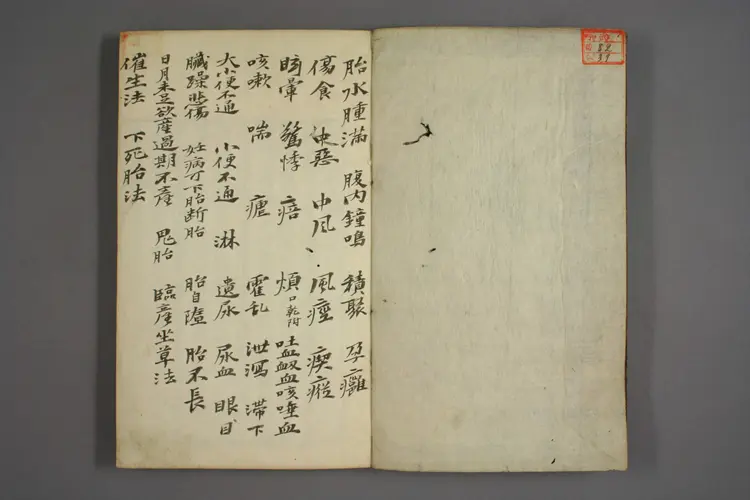 胎水腫滿 腹內鐘鳴 積聚 孕癰
傷食 中惡 中風 風痙 瘈瘲
眩暈 驚悸 痞 煩 口乾附 吐血衂血咳唾血
咳嗽 喘 瘧 霍乱 泄瀉 滯下
大小便不通 小便不通 淋 遺尿 尿血 眼目
臟躁悲傷 妊病可下胎断胎 胎自墮 胎不長
日月未足欲産過期不産 鬼胎 臨産坐草法
催生法 下死胎法